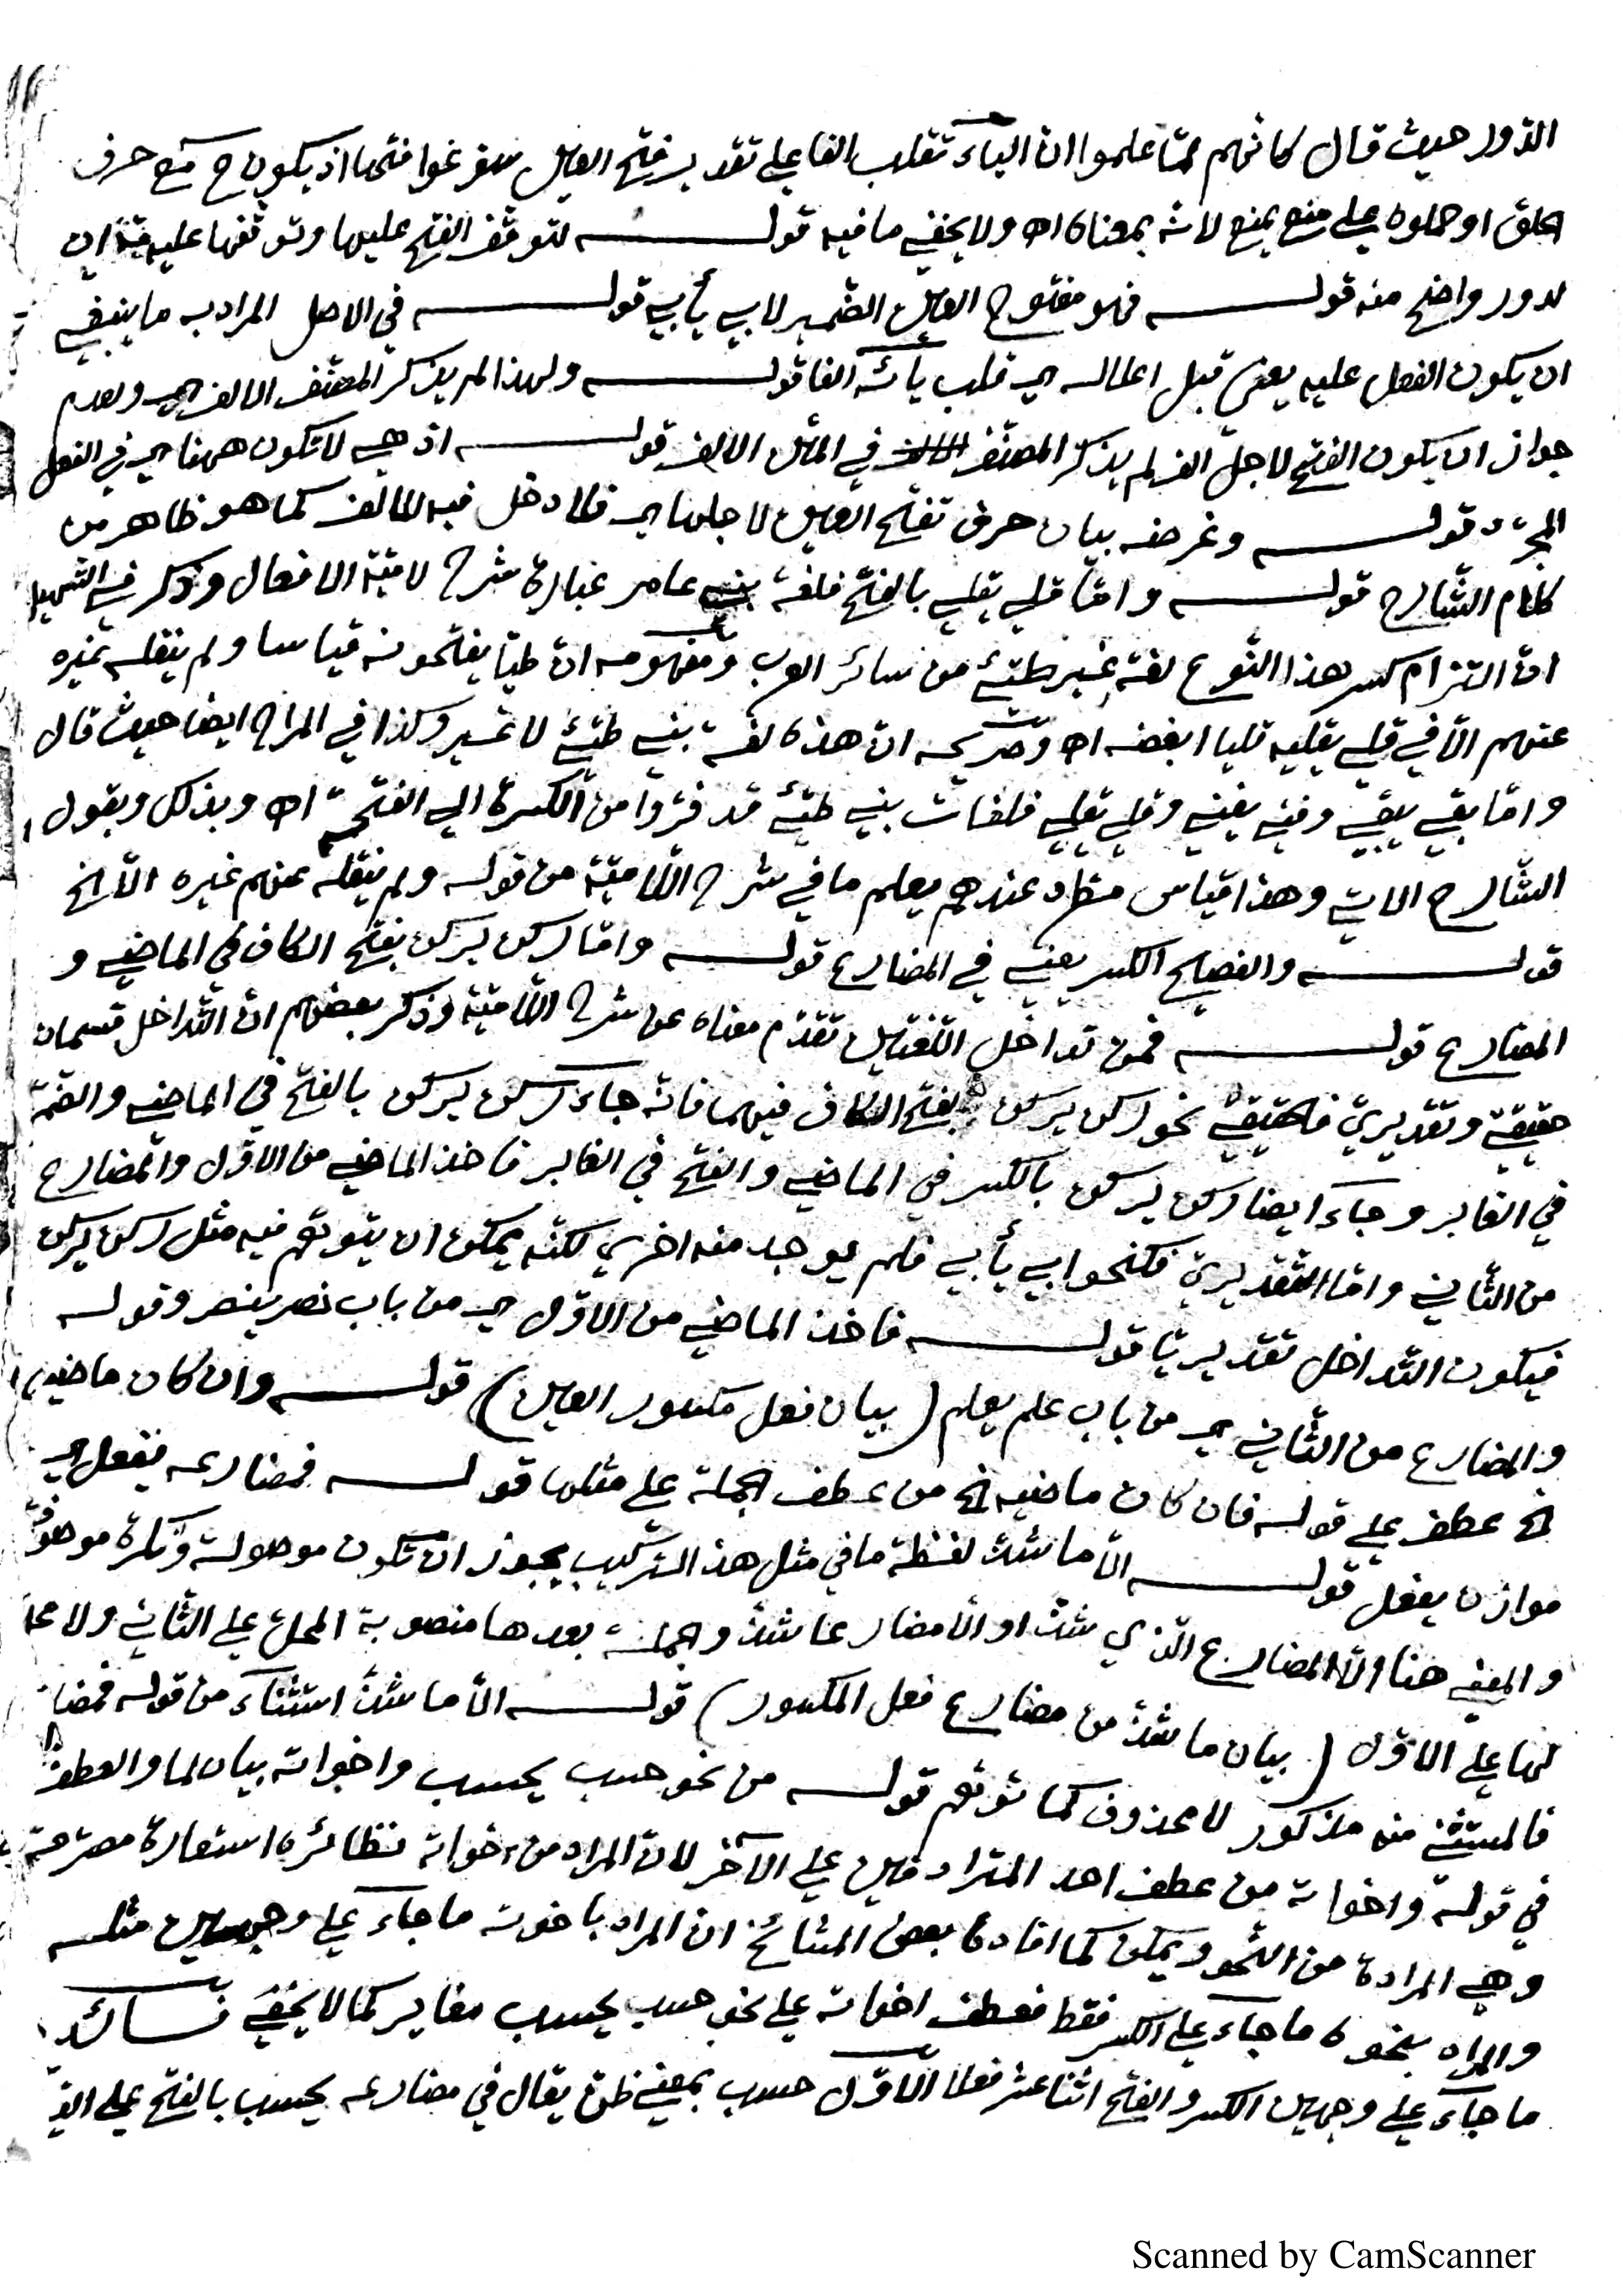 الدّور حيث قال كانّهم لمّا علموا انّ الياءَ تقلب الفا على تقدير فتح العين سوّغوا فتحها اذ يكون ح مع حرف
الحلق او حملوه على منع يمنع لانّه بمعناه اه ولا يخفى ما فيه قولـــه لتوقّف الفتح عليها وتوقّفها عليه
لدور واضح منه قولـــه فهو مفتوح العين الضّمير لابى يأبى قولـــه في الاصل المراد به ما ينبغي
ان يكون الفعل عليه يعنى قبل اعلاله اى قلب يائه الفا قولـــه ولهذا لم يذكر المصنّف الالف اى ولعدم
جواز ان يكون الفتح لاجل الف لم يذكر المصنّف في المتن الالف قولـــه اذ هى لا تكون ههنا اى في الفعل
المجرّد قولـــه وغرضه بيان حرف تفتح العين لاجلها اى فلا دخل فيه للالف كما هو ظاهر من
كلام الشّارح قولـــه وامّا قلى يقلى بالفتح فلغة بنى عامر عبارة شرح لاميّة الافعال وذكر في التسهيل
انّ التزام كسر هذا النّوع لغة غير طيّئ من سائر العرب ومفهومه انّ طيّا يفتحونه قياسا ولم ينقله غيره
عنهم الّا في قلى يقليه قليا ابغضه اه وصريحه انّ هذه لغة بنى طيّئ لا غير وكذا في المراح ايضا حيث قال
وامّا بقى يبقى وفنى يفنى وقلى يقلى فلغات بنى طيّئ قد فرّوا من الكسرة الى الفتحة اه وبذلك وبقول
الشّارح الاتى وهذا قياس مطّرد عندهم يعلم ما في شرح اللّاميّة من قوله ولم ينقله عنهم غيره الّا الخ
قولـــه والفصيح الكسر يعنى في المضارع قولـــه وامّا ركن يركن بفتح الكاف في الماضى و
المضارع قولـــه فمن تداخل اللّغتين تقدّم معناه عن شرح اللّاميّة وذكر بعضهم انّ التّداخل قسمان
حقيقىّ وتقديرىّ فالحقيقىّ نحو ركن يركن بفتح الكاف فيهما فانّه جاءَ ركن يركن بالفتح في الماضى والضّمّ
في الغابر وجاءَ ايضا ركن يركن بالكسر في الماضى والفتح في الغابر فاخذ الماضى من الاوّل والمضارع
من الثّانى وامّا التّقديرىّ فكنحو ابى يأبى فلم يوجد منه اخرى لكنّه يمكن ان يتوهّم فيه مثل ركن يركن
فيكون التّداخل تقديريّا قولـــه فاخذ الماضى من الاوّل اى من باب نصر ينصر وقوله
والمضارع من الثّانى اى من باب علم يعلم (بيان فعل مكسور العين) قولـــه وان كان ماضيه
الخ عطف على قوله فان كان ماضيه الخ من عطف الجملة على مثلها قولـــه فمضارعه يفعل اى
موازن يفعل قولـــه الّا ما شذّ لفظة ما في مثل هذا التركيب يجوز ان تكون موصولة ونكرة موصوفة
والمعنى هنا الّا المضارع الّذى شذّ او الّا مضارعا شذّ والجملة بعدها منصوبة المحلّ على الثّانى ولا محلّ
لها على الاوّل (بيان ما شذّ من مضارع فعل المكسور) قولـــه الّا ما شذّ استثناءَ من قوله فمضا
فالمستثنى منه مذكور لا محذوف كما توهّم قولـــه من نحو حسب يحسب واخواته بيان لما والعطف
في قوله واخواته من عطف احد المترادفين على الآخر لانّ المراد من اخواته نظائره استعارة مصرّحة
وهى المرادة من النّحو ويمكن كما افاده بعض المشائخ ان المراد باخوته ما جاءَ على وجهين مثله
والمراد بنحوه ما جاءَ على الكسر فقط فعطف اخواته على نحو حسب يحسب مغاير كما لا يخفى
ما جاءَ على وجهين الكسر والفتح اثنا عشر فعلا الاوّل حسب بمعنى ظنّ يقال في مضارعه يحسب بالفتح على
Scanned by CamScanner